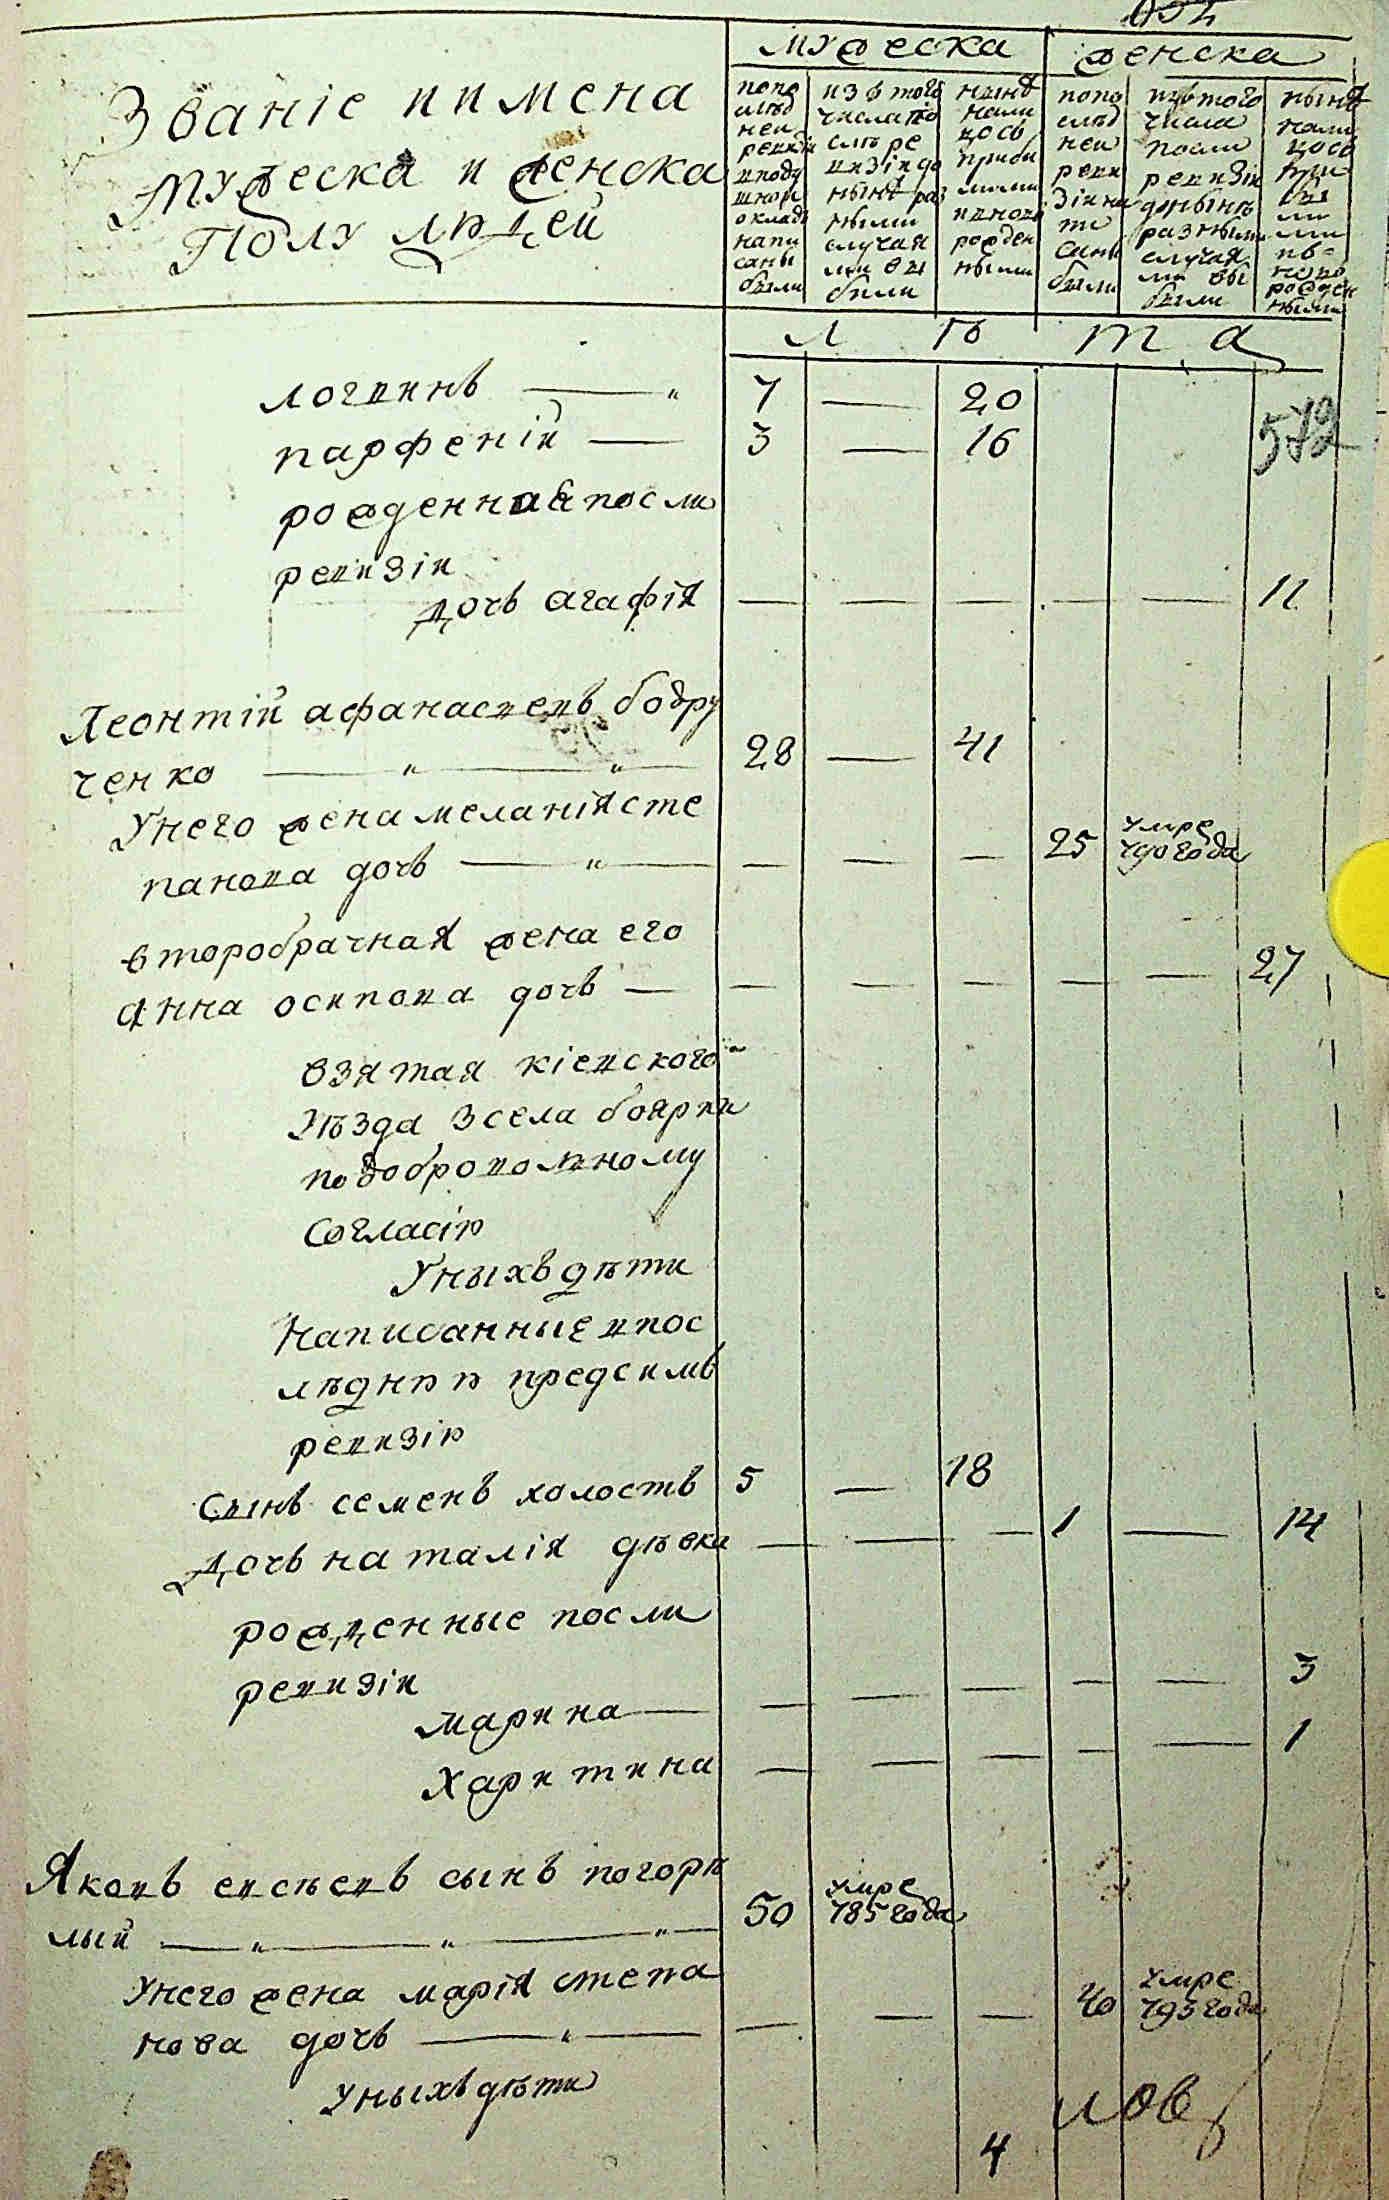 мужеска
женска
Званіе ипмена
Мужеска и женска
Полу людей
попо
слѣд
ней
ревизіи
вподу
шной
окладъ
напи
саны
были
изътого
числапо
слѣ ре
визіидо
нынѣраз
ными
случая
ми вы
были
нынѣ
нали
цось
прибы
лыми
ивново
рожден
ными
попо
слѣд
ней
реви
зіина
пи
саны
были
изътого
числа
посли
ревизіи
донынѣ
разными
случая
ми вы
были
нынѣ
нали
цось
при
бы
лы
ми
ив=
ново
рожден
ными
л ѣ т а
572
логвинъ 7 — 20
парфеній — 3 — 16
рожденная посли
ревизіи
дочь агафія — — — — — 11
Леонтій афанасиевъ бодру
ченко 28 — 41
Унего жена меланія сте
панова дочь — — — 25 умре 790 года
второбрачная жена его
Анна осипова дочь — — — — — — 27
взятая кіевского
Уѣзда зсела боярки
подобровольному
согласію
Уныхъ дѣти
Написанные впос
лѣднюю предсимъ
ревизію
Сынъ семенъ холостъ 5 — 18
Дочь наталія дѣвка — — — 1 — 14
рожденные посли
ревизіи
марина — — — — — 3
Харитина — — — — — 1
Яковъ евсѣевъ сынъ погорѣ
лый 50 умре 785 года
Унего жена марія степа
нова дочь — — — 40 умре 795 года
Уныхъ дѣти
4